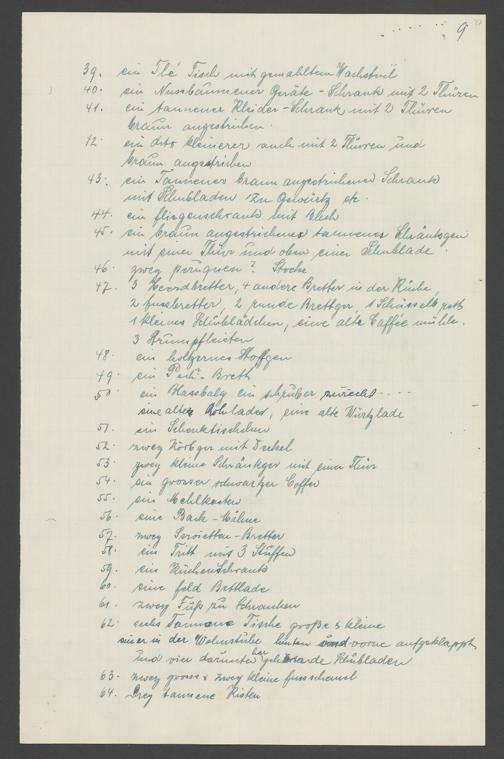 9
39. ein Thé Tisch mit gemahltem Wachstuch
40. ein Nussbäumener Geräte-Schrank mit 2 Thüren
41. ein tannener Kleider-Schrank mit 2 Thüren
braun angestrichen.
42. ein dito kleinerer auch mit 2 Thüren und
braun angestrichen
43. ein Tannener braun angestrichener Schrank
mit Schubladen zu Gewürtz etc.
44. ein fliegenschrank mit Blech
45. ein braun angestrichenes tannenes Schränkgen
mit einer Thür und oben einer Schublade.
46. zwey peruquen? Stocke
47. 3 Heerdbretter, 4 andere Bretter in der Küche,
2 fussbretter, 2 runde Brettger, 1 Schüssel
1 kleines Schublädchen, eine alte Caffée mühle.
3 Strumpfleisten
48. ein holzernes
49. ein Brett
50. ein Blasebalg ein
eine alte eine alte Würtzlade
51. ein Schenktischchen
52. zwey Körbger mit Deckel
53. zwey kleine Schränkger mit einer Thür
54. ein grosser schwartzer Coffer
55. ein Mehlkasten
56. eine Back-Mühle
57. zwey Servietten-Bretter
58. ein Tritt mit 3 Stuffen
59. ein Küchenschrank
60. eine feld Bettlade
61. zwey Füß zu Schrancken
62. sechs Tannene Tische große & kleine
einer in der Wohnstube hinten und vorne aufgeklappt
und vier darunter gehörende Schubladen
63. zwey grosse & zwey kleine fusschemel
64. Drey tannene Kisten